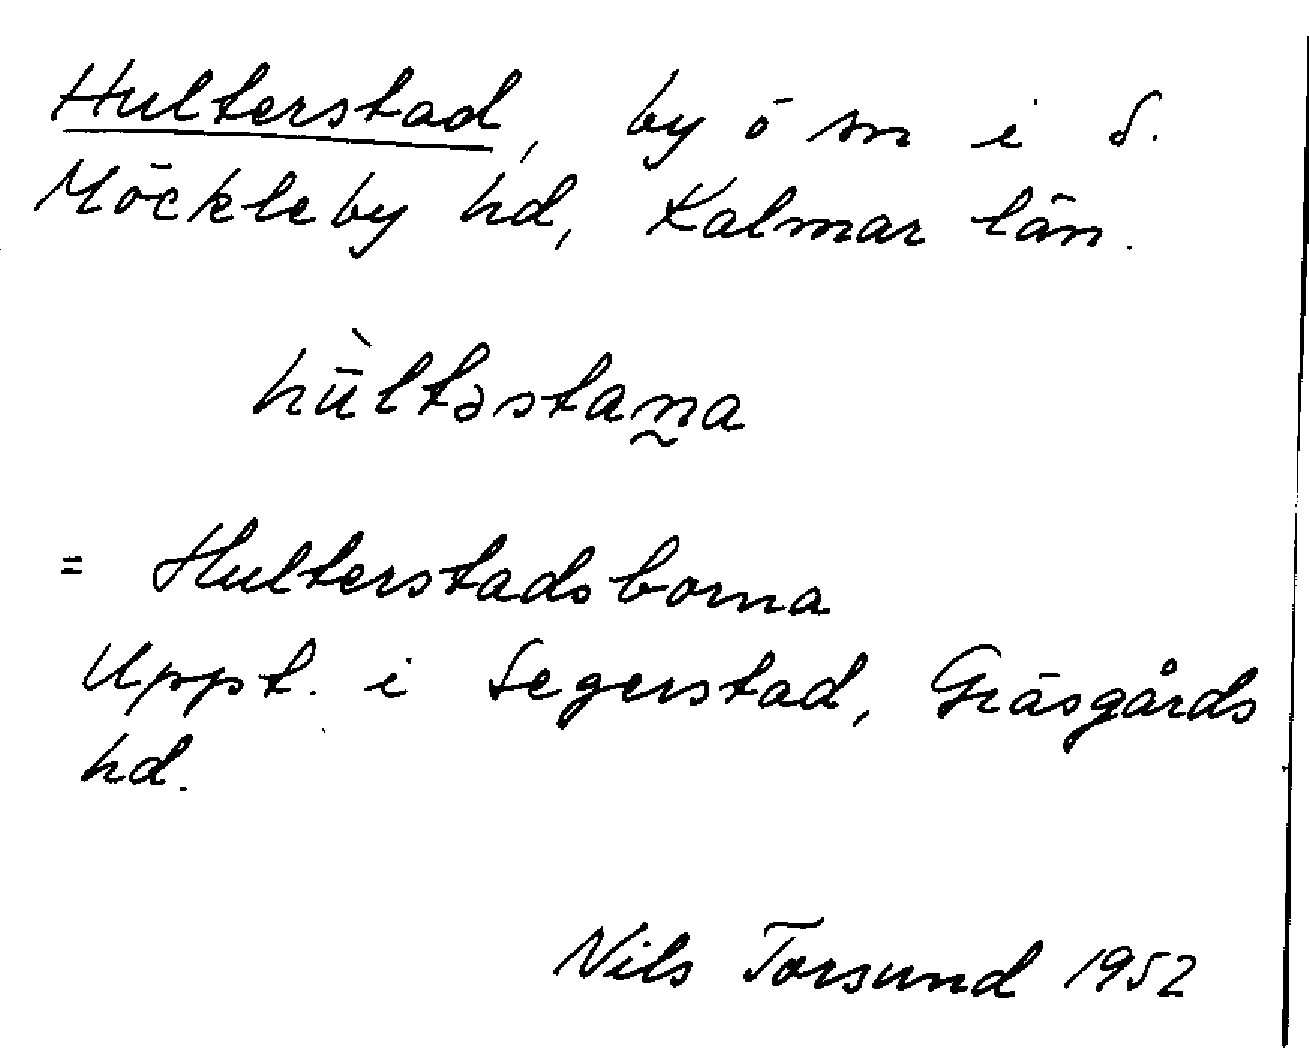 Hulterstad, by o sn i S.
Möckleby hd, Kalmar län.
hù̄ltəstaṋa
= Hulterstadsborna
Uppt. i Segerstad, Gräsgårds
hd.
Nils Torsund 1952